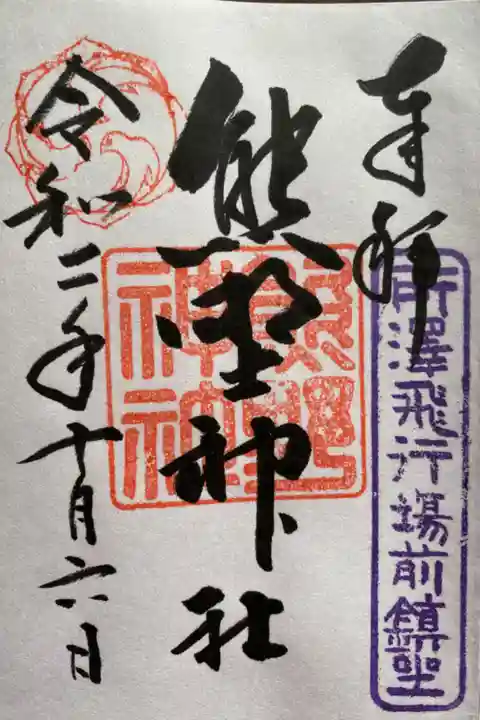 奉拝
所澤飛行場前鎮座
熊野神社
熊野神社
令和二年十月六日